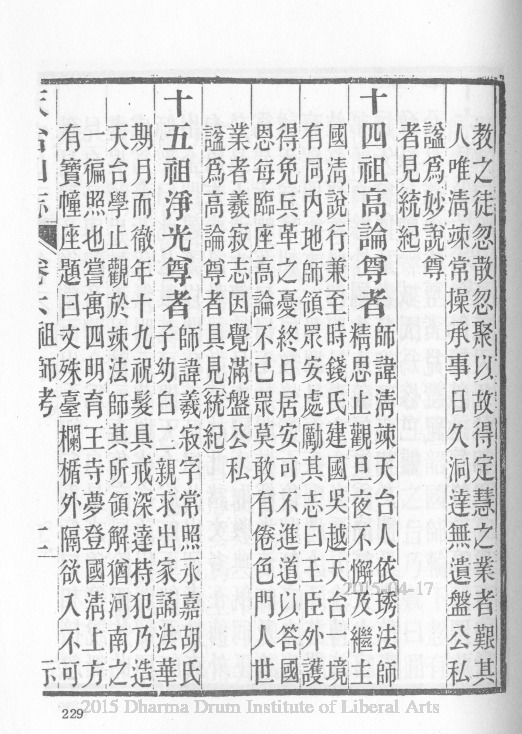 教之徒忽散忽聚以故得定慧之業者艱其
人唯清竦常操承事日久洞達無遺盤公私
諡爲妙說尊
者見統紀
十四祖高論尊者 師諱清竦天台人依琇法師
精思止觀旦夜不懈及繼主
國清說行兼至時錢氏建國吳越天台一境
有同內地師領眾安處勵其志曰王臣外護
得免兵革之憂終日居安可不進道以答國
恩每臨座高論不已眾莫敢有倦色門人世
業者羲寂志因覺滿盤公私
諡爲高論尊者具見統紀
十五祖淨光尊者 師諱羲寂字常照永嘉胡氏
子幼白二親求出家誦法華
期月而徹年十九祝髮具戒深達持犯乃造
天台學止觀於竦法師其所領解猶河南之
一徧照也嘗寓四明育王寺夢登國清上方
有寶幢座題曰文殊臺欄楯外隔欲入不可
天台山志 卷六祖師考 二
229
2015-04-17
2015 Dharma Drum Institute of Liberal Arts